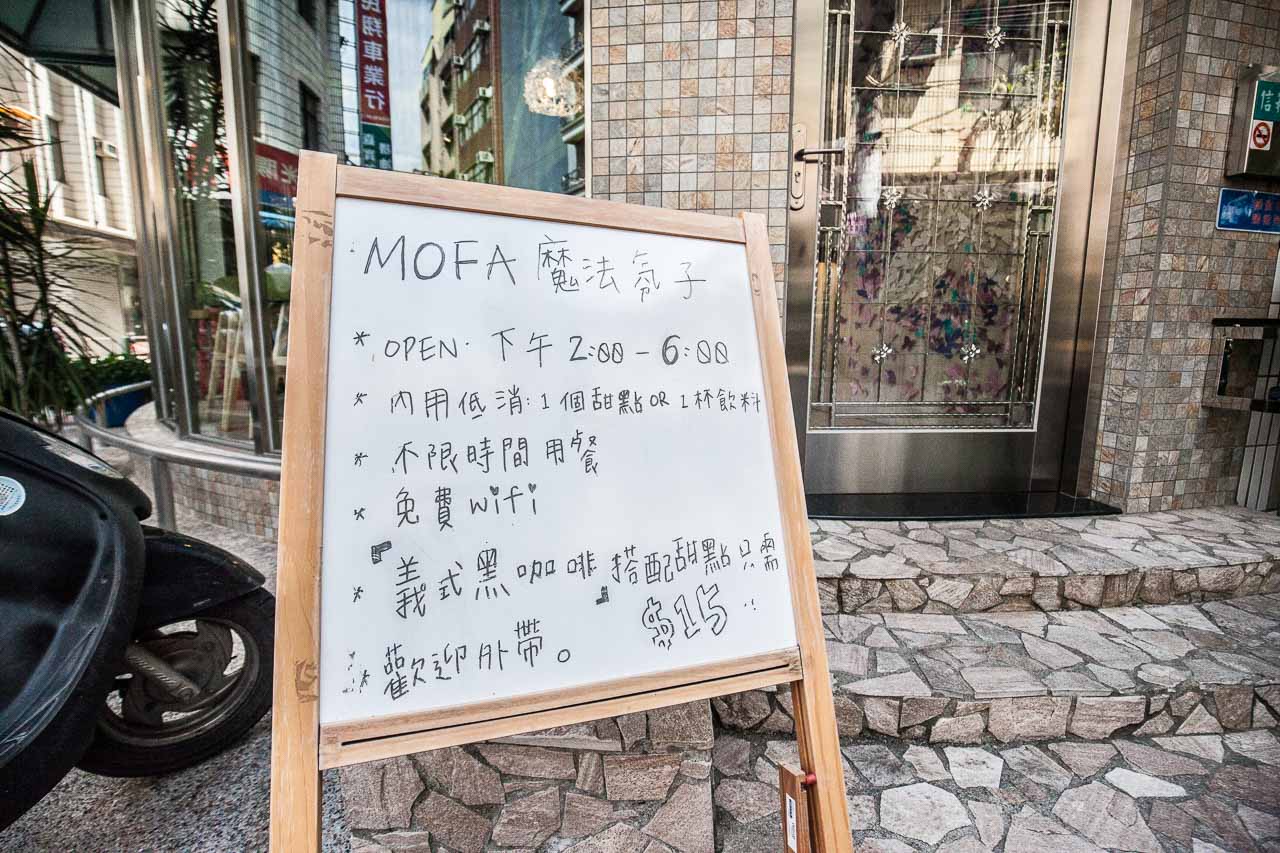 民翔車業行
MOFA 魔法氛子
* OPEN. 下午 2:00 - 6:00
* 內用低消:1個甜點 OR 1杯飲料
* 不限時間用餐
* 免費wifi
* 『義式黑咖啡』搭配甜點只需
$15
* 歡迎外帶。
信